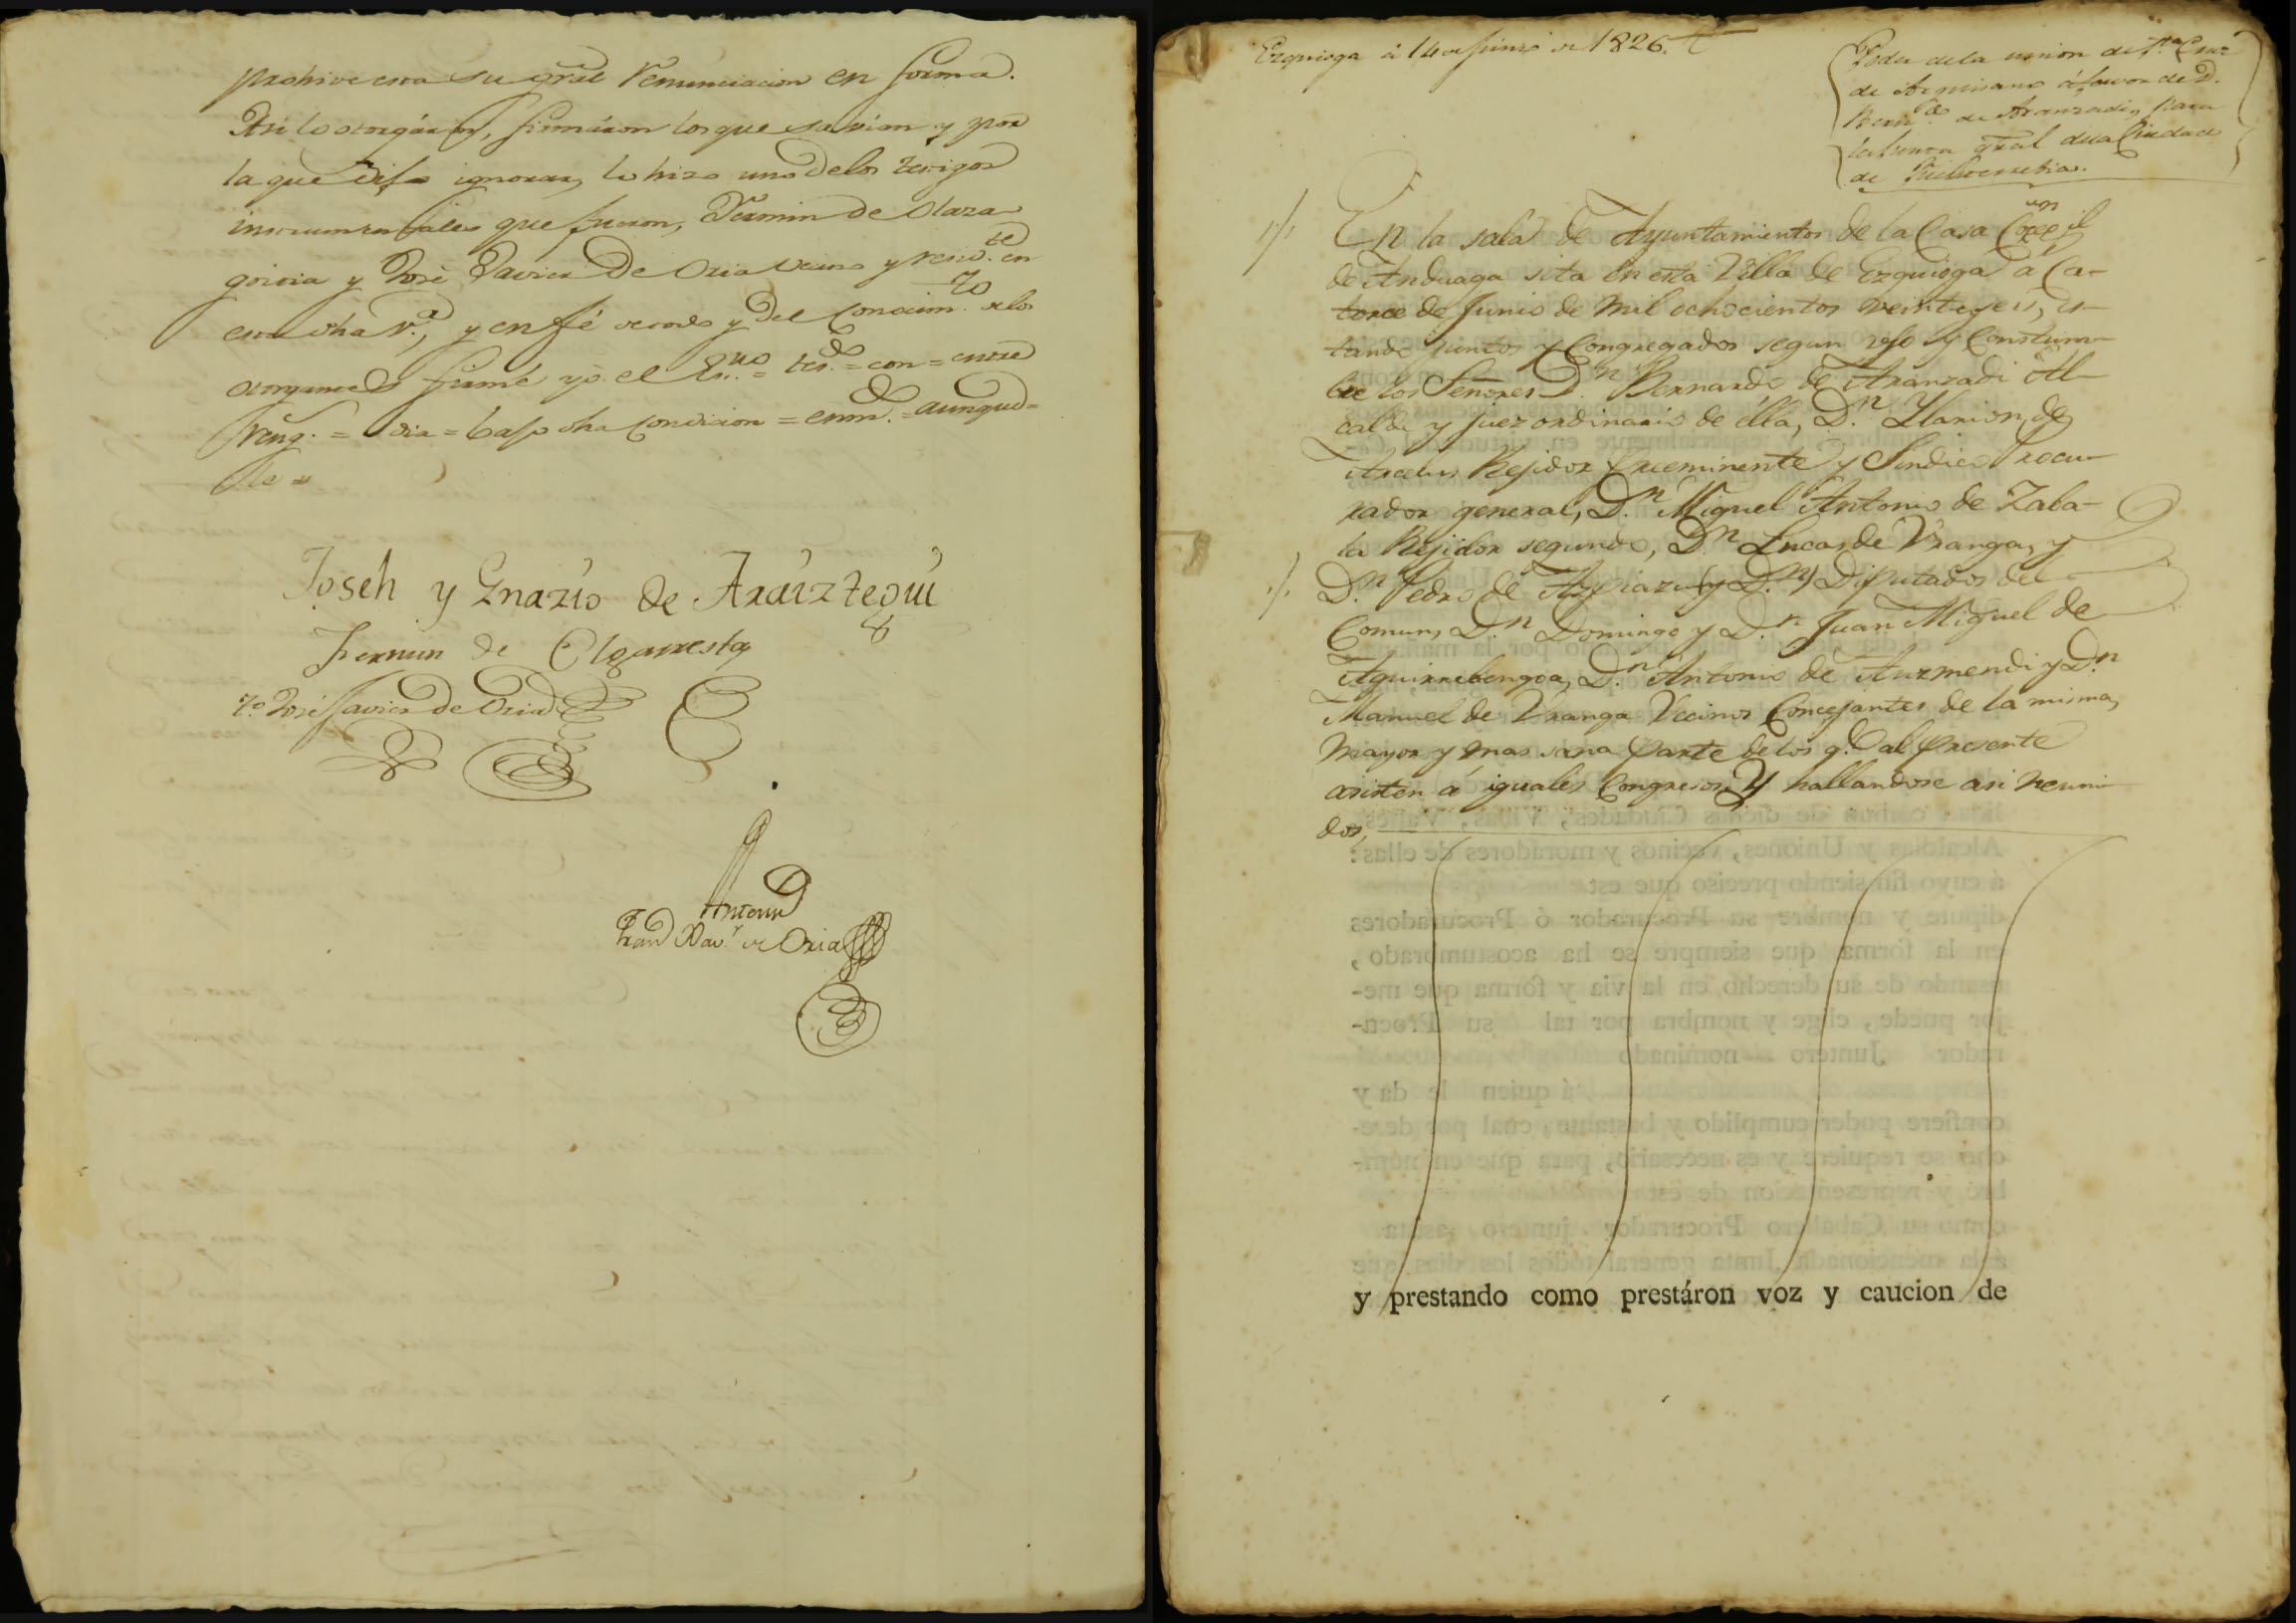 prohive esta su gral renunciacion en forma.
Asi lo otorgáron, firmáron los que savian y por
la que dijo ignorar, lo hizo uno de los testigos
instrumentales que fueron, Fermin de Olaza
goitia y José Xavier de Oria vecino y resid.te en
esta dha v.a, y en fé de todo y del conocim.to de los
otorgantes firmé yo el Es.no = tes.do = con = entre
reng. = dia = bajo dha condicion = enm.do = aunque =
le =
Joseh y Gnazio de Araiztegui
Fermin de Elgarresta
T.o José Javier de Oria
Antemi
Fran Xav.r de Oria
Ezquioga á 14 de Junio de 1826.
Poder de la union de S.ta Cruz
de Arguisano á favor de D.
Bern.do de Aranzadi, para
la Junta gral de la Ciudad
de Fuenterrabia.
En la sala de Ayuntamientos de la Casa Concejil
de Anduaga sita en esta Villa de Ezquioga á Ca-
torce de Junio de mil ochocientos veinte y seis, es-
tando juntos y Congregados segun uso y Costum-
bre los Señores D.n Bernardo de Aranzadi Al-
calde y Juez ordinario de ella, D.n Ylarion de
Arcelus Rejidor Preeminente y Sindico Procu-
rador general, D.n Miguel Antonio de Zaba-
la Rejidor segundo, D.n Lucas de Uranga, y
D.n Pedro de Azpiazu (y D.n) Diputados del
Comun, D.n Domingo y D.n Juan Miguel de
Aguirrebengoa, D.n Antonio de Aurmendi y D.n
Manuel de Uranga Vecinos Concejantes de la misma,
mayor y mas sana parte de los q.e al presente
asisten á iguales Congresos, Y hallandose asi reuni-
dos,
y prestando como prestáron voz y caucion de